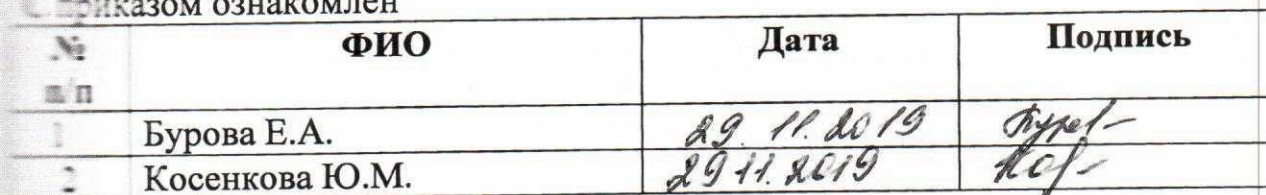 С приказом ознакомлен
№ п/п ФИО Дата Подпись
1 Бурова Е.А. 29.11.2019
2 Косенкова Ю.М. 29.11.2019